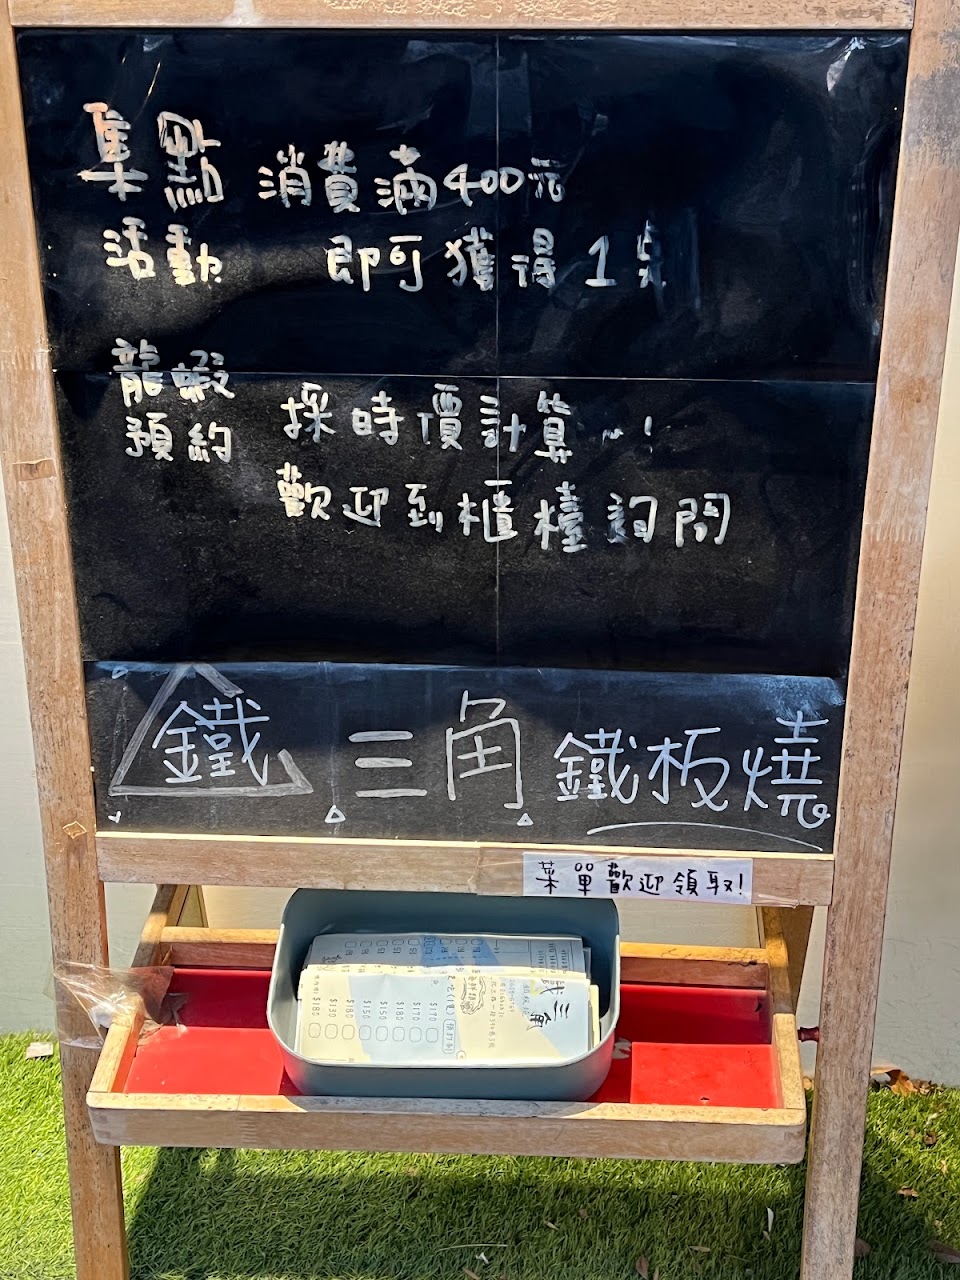 集點 消費滿400元
活動 即可獲得1点
龍蝦
預約 採時價計算~!
歡迎到櫃檯詢問
鐵三角 鐵板燒
菜單歡迎領取!
鐵三角
$170
$170
$180
$150
$150
$130
$180